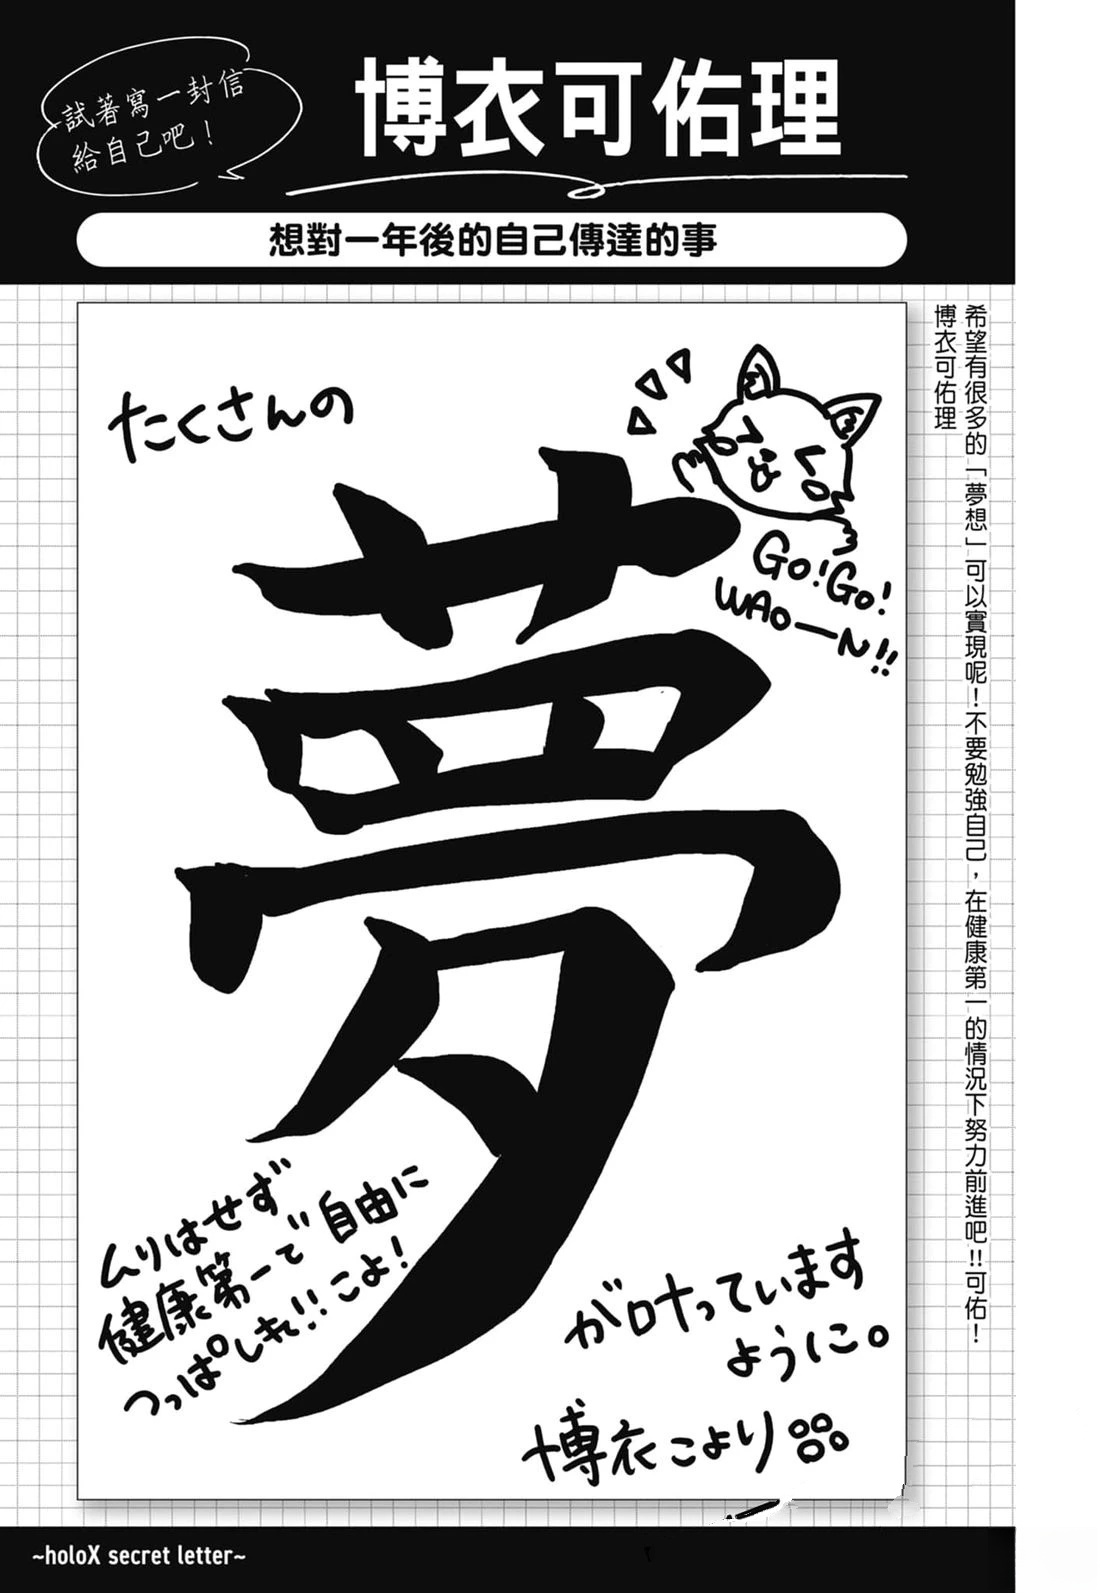 試著寫一封信
給自己吧！
博衣可佑理
想對一年後的自己傳達的事
たくさんの
夢
Go!Go!
WAO—N!!
ムリはせず
健康第一で自由に
つっぱしれ!!こよ!
が叶っています
ように。
博衣こより
希望有很多的「夢想」可以實現呢！不要勉強自己，在健康第一的情況下努力前進吧!!可佑！
博衣可佑理
~holoX secret letter~